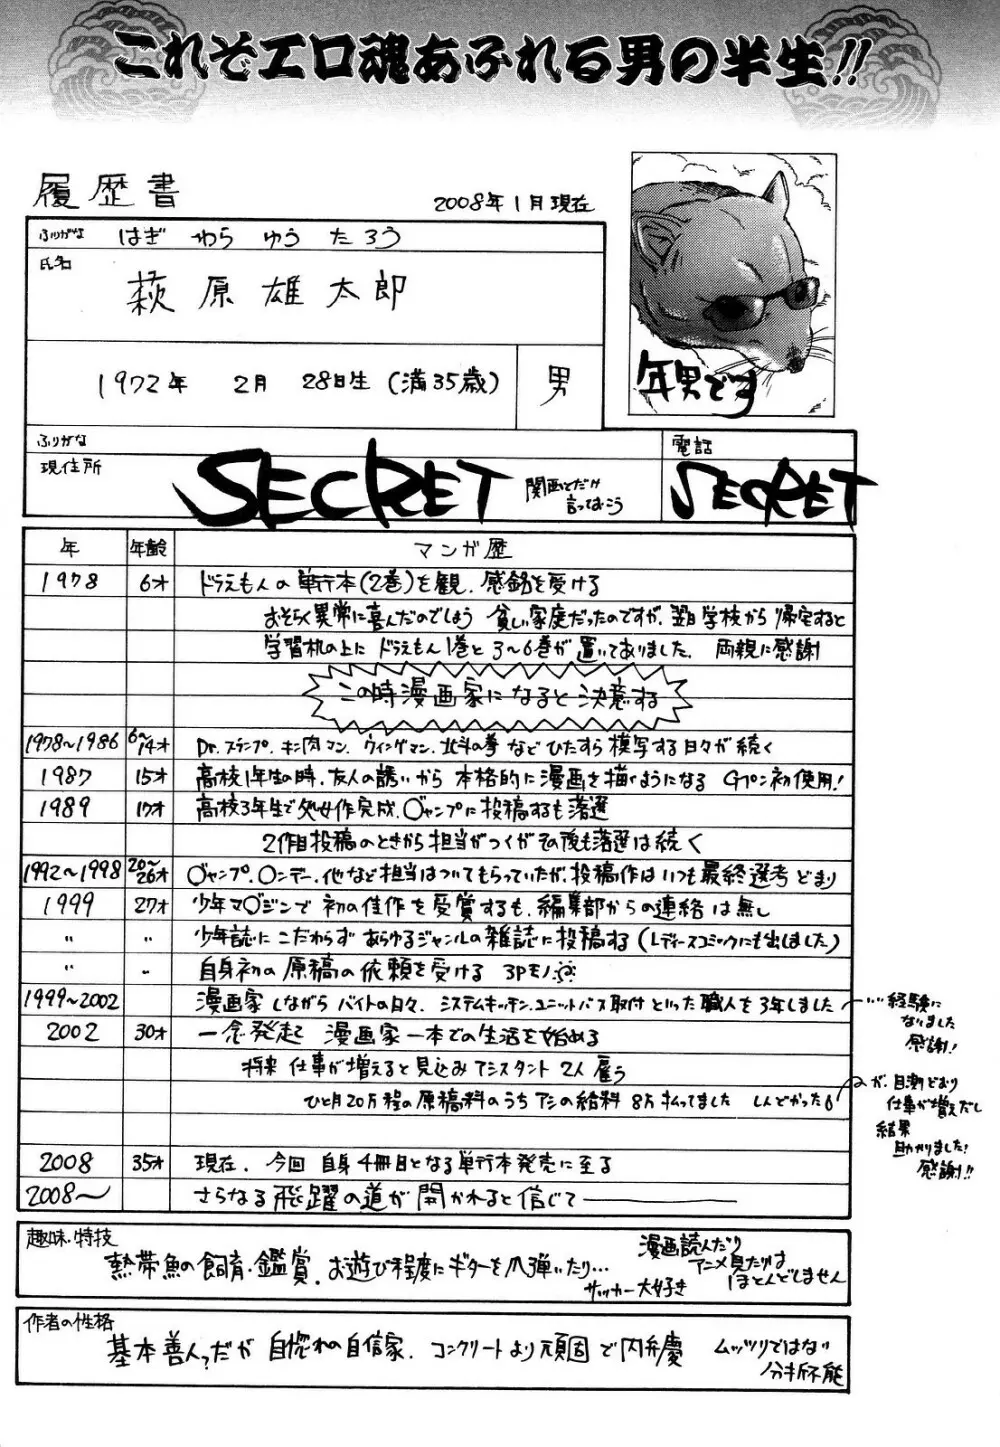 これぞエロ魂あふれる男の半生!!
履歴書
2008年1月現在
ふりがな はぎ わら ゆう たろう
氏名
萩原雄太郎
1972年 2月 28日生(満35歳)
男
年男です
ふりがな
現住所
SECRET
関西とだけ
言っておこう
電話
SECRET
年 年齢 マンガ歴
1978 6才 ドラえもんの単行本(2巻)を観、感銘を受ける
おそらく異常に喜んだのでしょう 貧しい家庭だったのですが、翌日学校から帰宅すると
学習机の上にドラえもん1巻と3〜6巻が置いてありました。両親に感謝
この時漫画家になると決意する
1978〜1986 6〜14才 Dr.スランプ、キン肉マン、ウィングマン、北斗の拳などひたすら模写する日々が続く
1987 15才 高校1年生の時、友人の誘いから本格的に漫画を描くようになる Gペン初使用!
1989 17才 高校3年生で処女作完成、○ャンプに投稿するも落選
2作目投稿のときから担当がつくがその後も落選は続く
1992〜1998 20〜26才 ○ャンプ、○ンデー、他など担当はついてもらっていたが、投稿作はいつも最終選考どまり
1999 27才 少年マ○ジンで初の佳作を受賞するも、編集部からの連絡は無し
〃 〃 少年誌にこだわらずあらゆるジャンルの雑誌に投稿する(レディースコミックにも出しました)
〃 〃 自身初の原稿の依頼を受ける 3Pモノ
1999〜2002 漫画家しながらバイトの日々、システムキッチン、ユニットバス取付といった職人を3年しました
…経験に
なりました
感謝!
2002 30才 一念発起 漫画家一本での生活を始める
将来 仕事が増えると見込みアシスタント2人雇う
ひと月20万程の原稿料のうちアシの給料8万払ってました しんどかった
が、目測どおり
仕事が増えだし
結果
助かりました!
感謝!!
2008 35才 現在、今回 自身4冊目となる単行本発売に至る
2008〜 さらなる飛躍の道が開かれると信じて―
趣味・特技
熱帯魚の飼育・鑑賞、お遊び程度にギターを爪弾いたり…
サッカー大好き
漫画読んだり
アニメ見たりは
ほとんどしません
作者の性格
基本善人?だが自惚れの自信家、コンクリートより頑固で内弁慶
ムッツリではない
分析不能